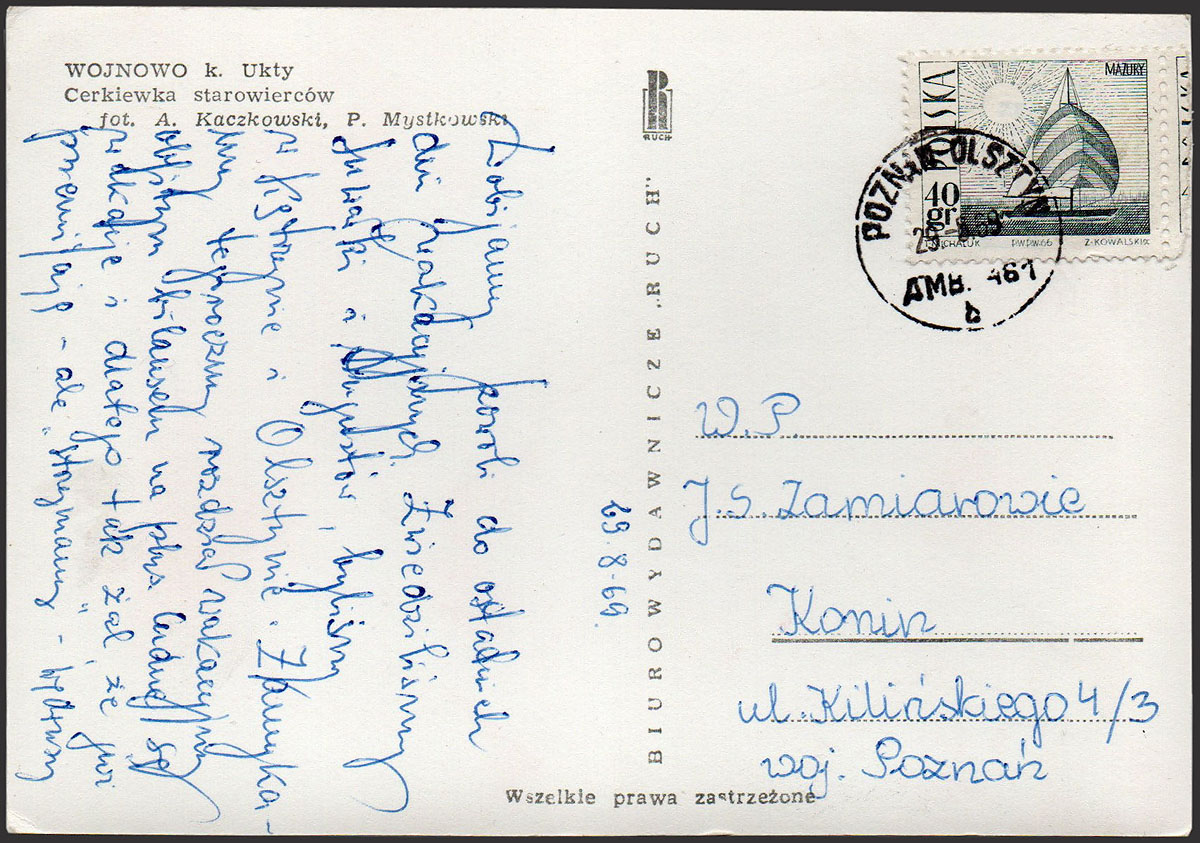 WOJNOWO k. Ukty
Cerkiewka starowierców
fot. A. Kaczkowski, P. Mystkowski
Dobijamy powoli do ostatnich
dni wakacyjnych. Zwiedziliśmy
Suwałki i Augustów, byliśmy
w Kętrzynie i Olsztynie. Zamyka-
my tegoroczny rozdział wakacyjny
obfitym bilansem na plus. Cudne są
wakacje i dlatego tak żal że już
przemijają - ale "trzymamy" -
29.8-69.
RUCH
BIURO WYDAWNICZE „RUCH"
Wszelkie prawa zastrzeżone
POLSKA
MAZURY
40
gr
T. MICHALUK
PWPW.66
Z. KOWALSKI sc
POZNAŃ OLSZTYN
AMB. 461
b
W.P.
J.S. Zamiarowie
Konin
ul. Kilińskiego 4/3
woj. Poznań